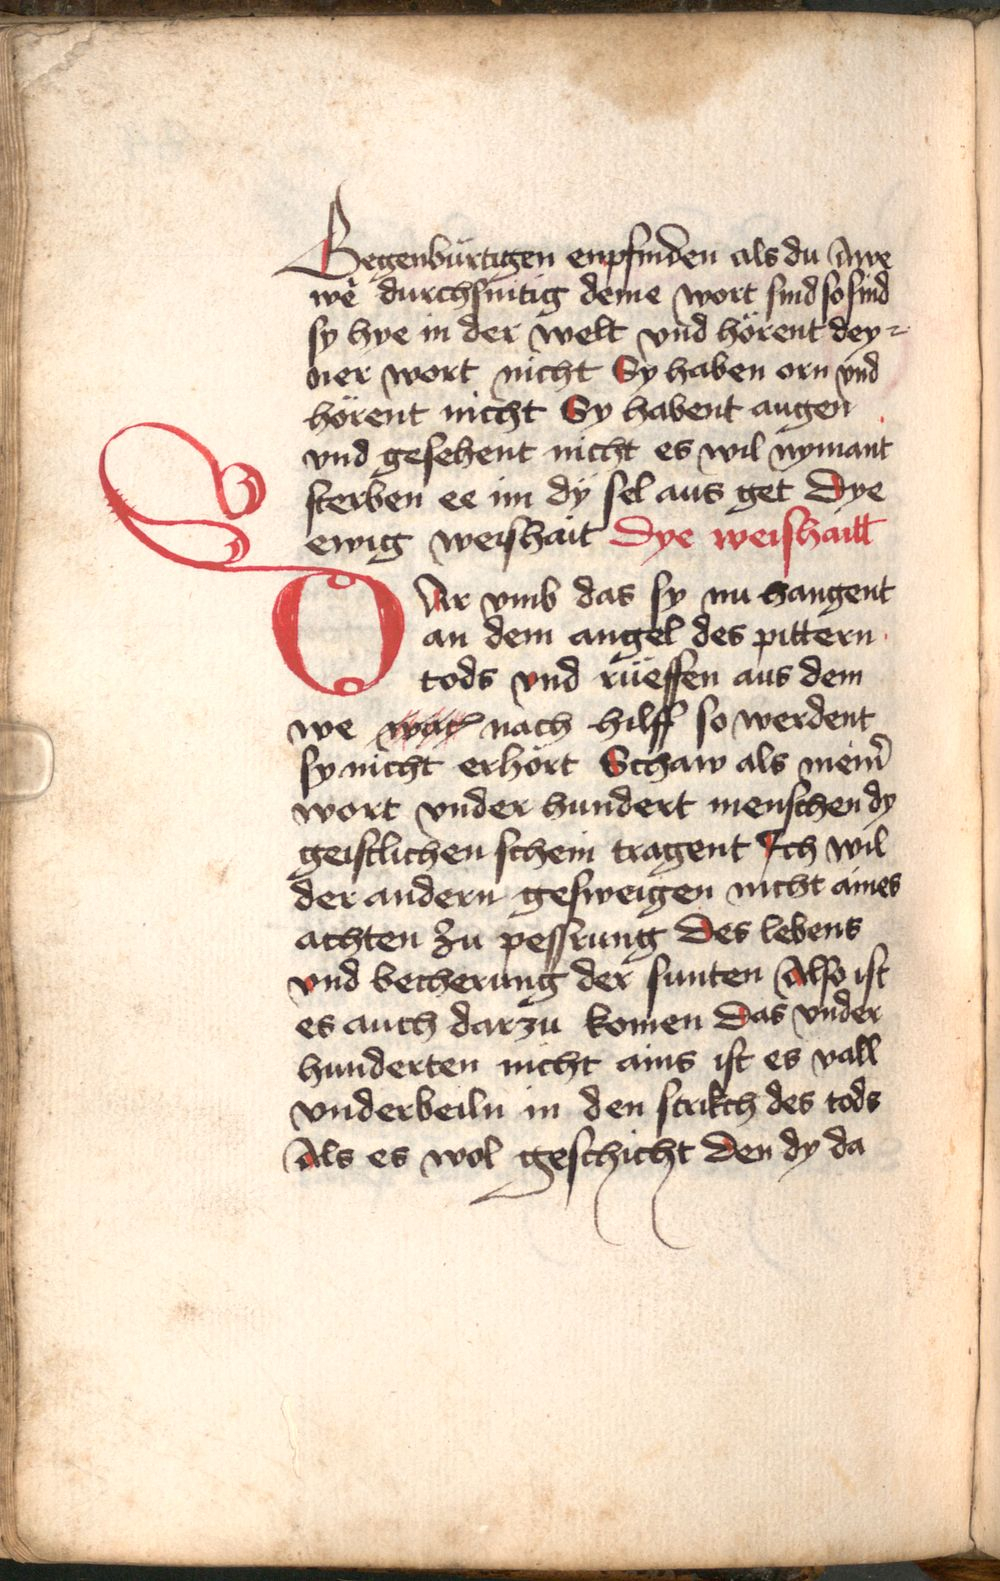 Gegenbürtigen enpfinden als du Awe
wê durchsnitig deine wort sind so sind
sy hye in der welt vnd hörent dey-
ner wort nicht Sy haben orn vnd
hörent nicht Sy habent augen
vnd gesehent nicht es wil nymant
sterben ee im dÿ sel aus get Dye
ewig weishait Dye weishaitt
DAr vmb das sy nu hangent
an dem angel des pittern
tods vnd rüeffen aus dem
we nach hilff so werdent
sy nicht erhört Schaw als mein̄
wort vnder hundert menschen dy
geistlichen schein tragent Ich wil
der andern gesweigen nicht aines
achten zu pessrung Des lebens
vnd becherung der sunten Also ist
es auch darzu komen Das vnder
hunderten nicht ains ist es vall
vnderbeiln in den strikch des tods
Als es wol geschicht Den dy da